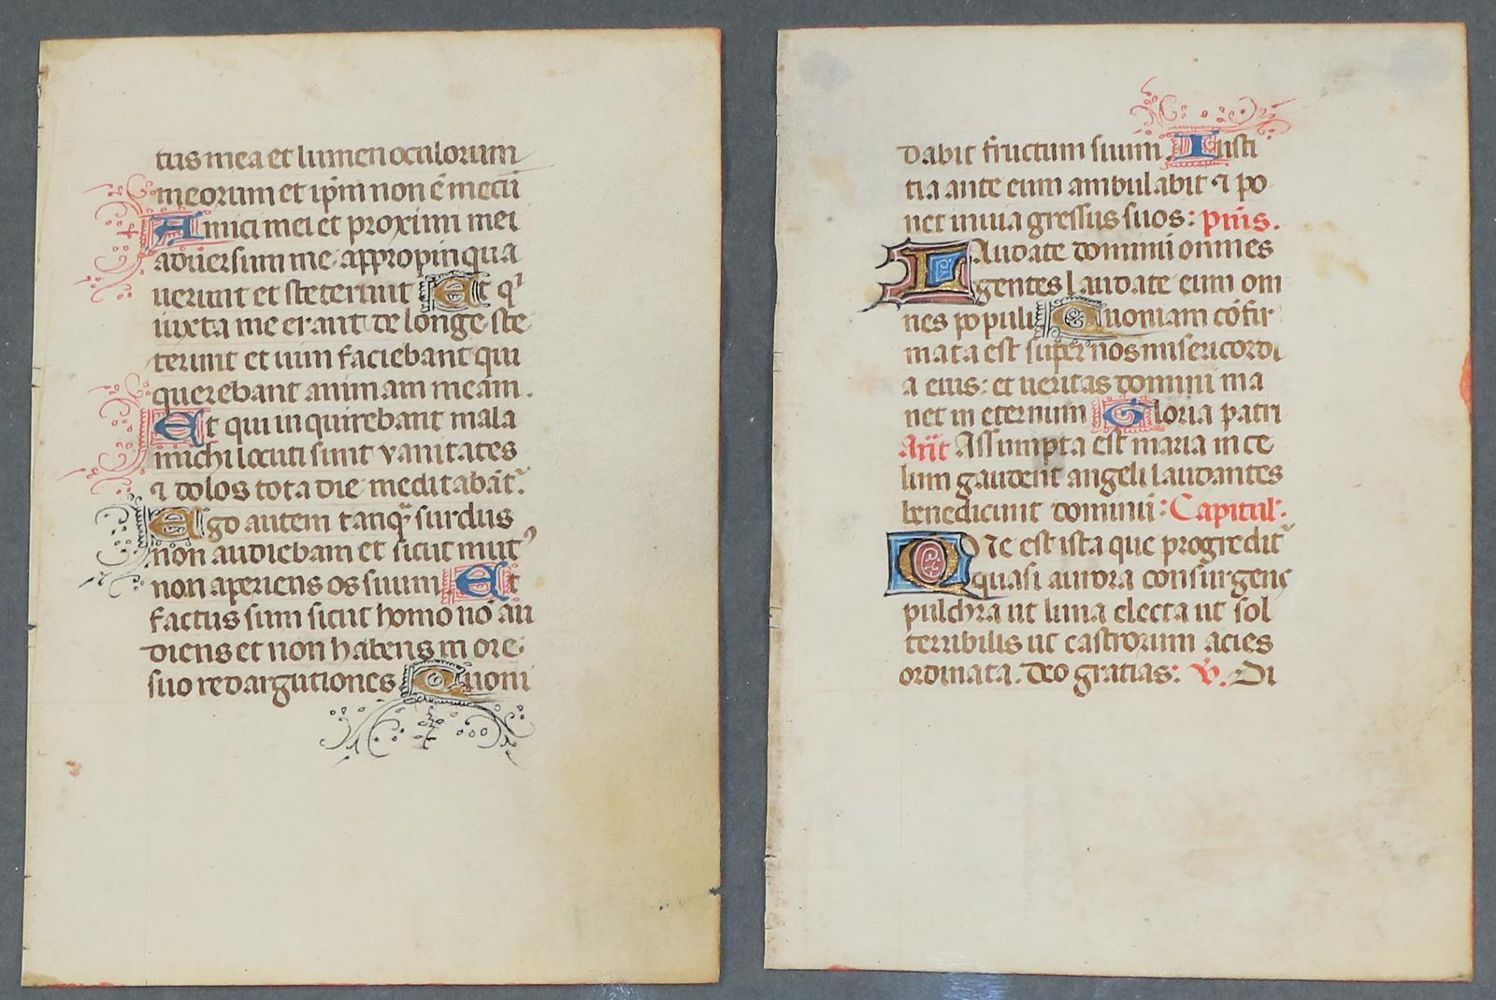 tus mea et lumen oculorum
meorum et ip̄m non ē mecū
Amici mei et proximi mei
aduersum me appropinqua
uerunt et steterunt Et qͥ
iuxta me erant de longe ste
terunt et uim faciebant qui
querebant animam meam.
Et qui inquirebant mala
michi locuti sunt vanitates
⁊ dolos tota die meditabāt᷑.
Ego autem tanq̄ surdus
non audiebam et sicut mutꝰ
non aperiens os suum Et
factus sum sicut homo nō au
diens et non habens in ore
suo redargutiones Quoni
dabit fructum suum. Iusti
tia ante eum ambulabit ⁊ po
net in uia gressus suos: p̄us.
Laudate dominū omnes
gentes laudate eum om
nes populi Quoniam cōfir
mata est super nos misericordi
a eius: et ueritas domini ma
net in eternum Gloria patri
An̄t Assumpta est maria in ce
lum gaudent angeli laudantes
benedicunt dominū: Capitul.
Que est ista que progredit᷑
quasi aurora consurgens
pulchra ut luna electa ut sol
terribilis ut castrorum acies
ordinata. deo gratias: V. Di